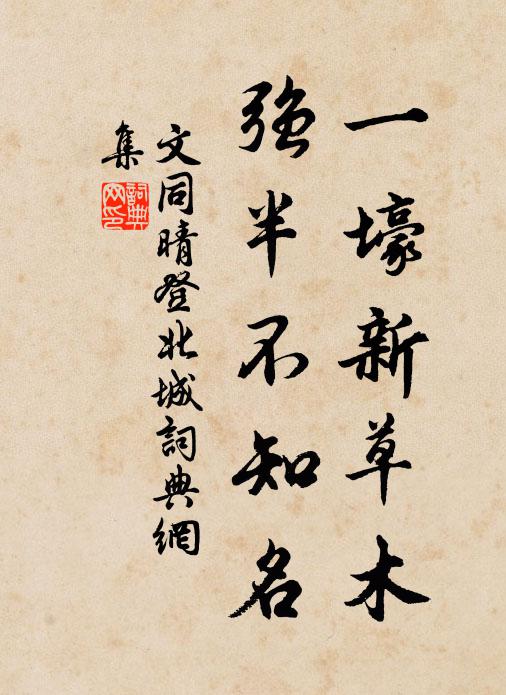 一壕新草木
強半不知名
文同晴登北城詞典網
集
詞典
网印